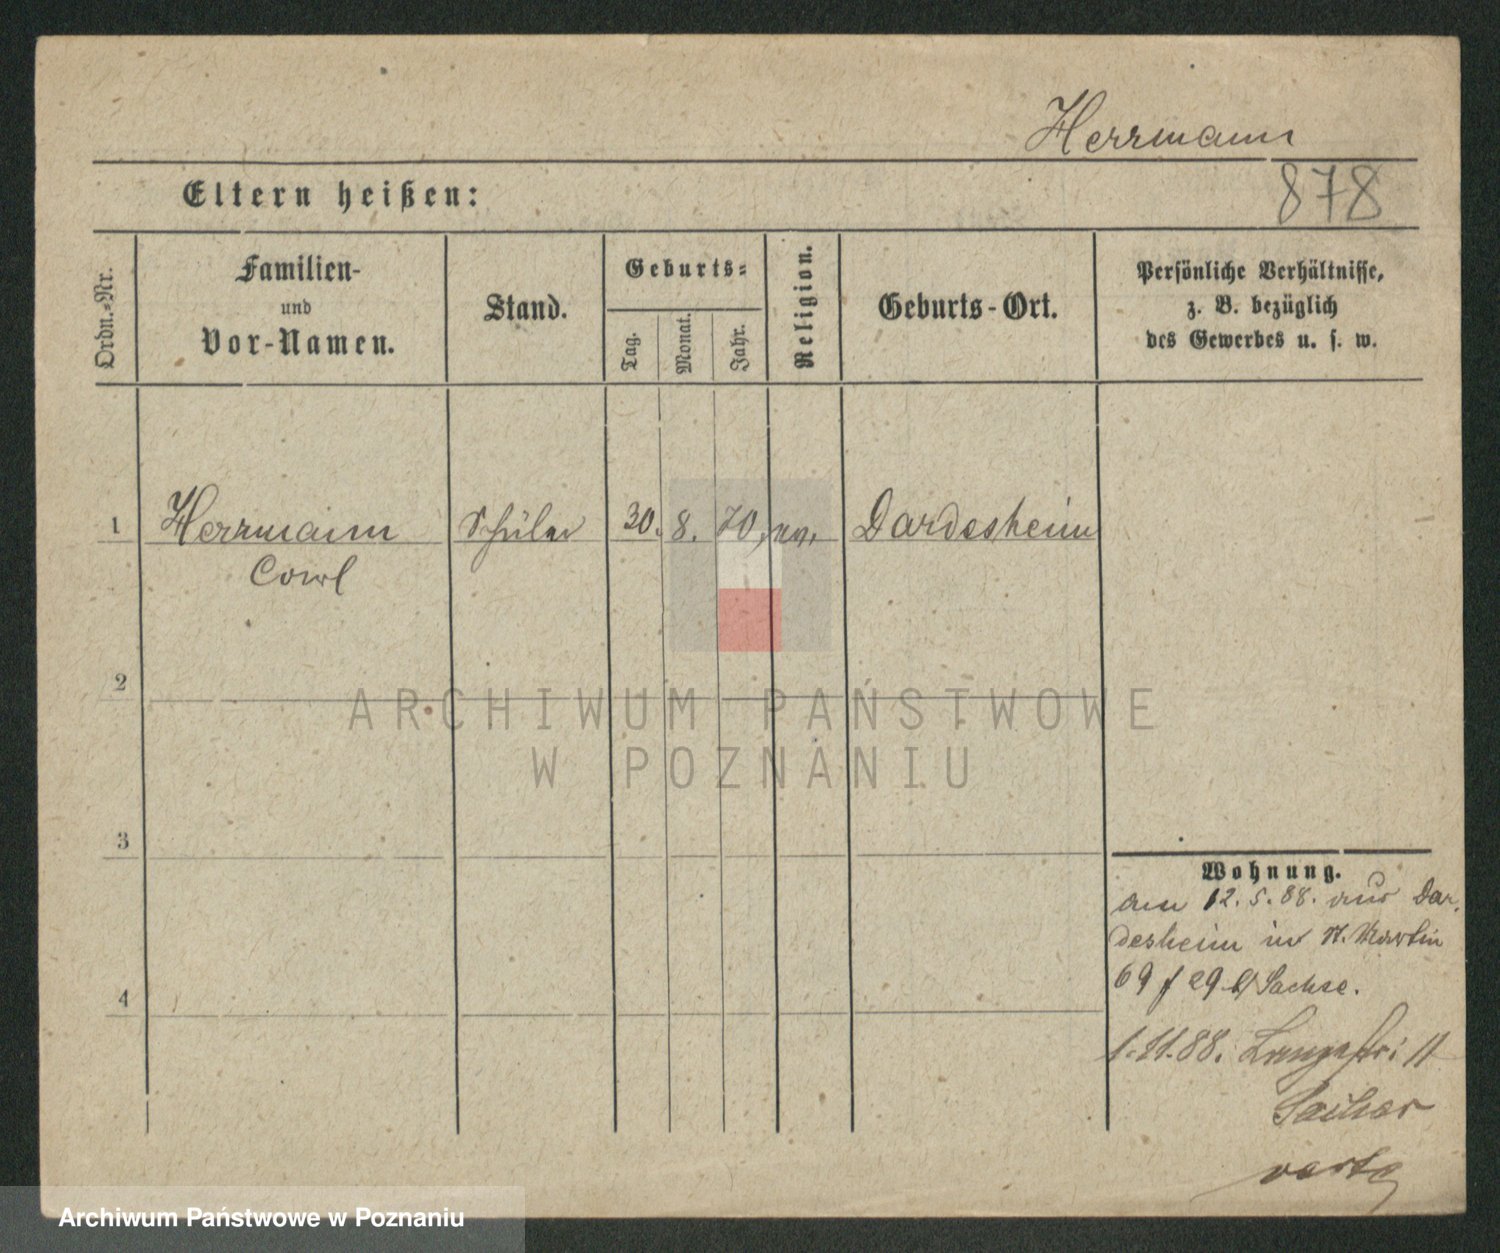 Herrmann
Eltern heißen:
878
Ordn.-Nr.
Familien-
und
Vor-Namen.
Stand.
Geburts-
Tag.
Monat.
Jahr.
Religion.
Geburts-Ort.
Persönliche Verhältnisse,
z. B. bezüglich
des Gewerbes u. s. w.
1 Herrmann Schüler 30. 8. 70, ev. Dardesheim
Carl
2
ARCHIWUM PAŃSTWOWE
W POZNANIU
3
4
Wohnung.
am 12.5.88. aus Dar-
desheim in St. Martin
69 f 29 b/ Sachse.
1.11.88. 11
verte
Archiwum Państwowe w Poznaniu